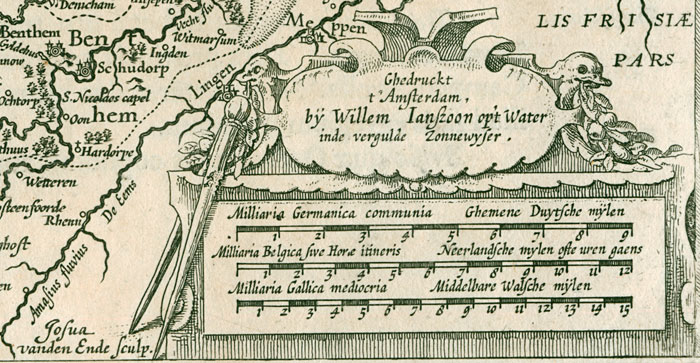 V. Denicham
Benthem
Gildehus
Ben
Vecht flu
Witmarsum
Ingden
Schudorp
Ochtorp
S. Nicolaes capel
Oon
hem
Hardorpe
Wetteren
Rhenu
De Eems
Amasius fluvius
Lingen
Meppen
LIS FRISIÆ
PARS
Ghedruckt
t'Amsterdam,
bÿ Willem Ianszoon op't Water
inde vergulde Zonnewyser.
Milliaria Germanica communia Ghemene Duytsche mÿlen
1 2 3 4 5 6 7 8 9
Milliaria Belgica sive Horæ itineris Neerlandsche mÿlen ofte uren gaens
1 2 3 4 5 6 7 8 9 10 11 12
Milliaria Gallica mediocria Middelbare Walsche mÿlen
1 2 3 4 5 6 7 8 9 10 11 12 13 14 15
Josua
vanden Ende sculp.